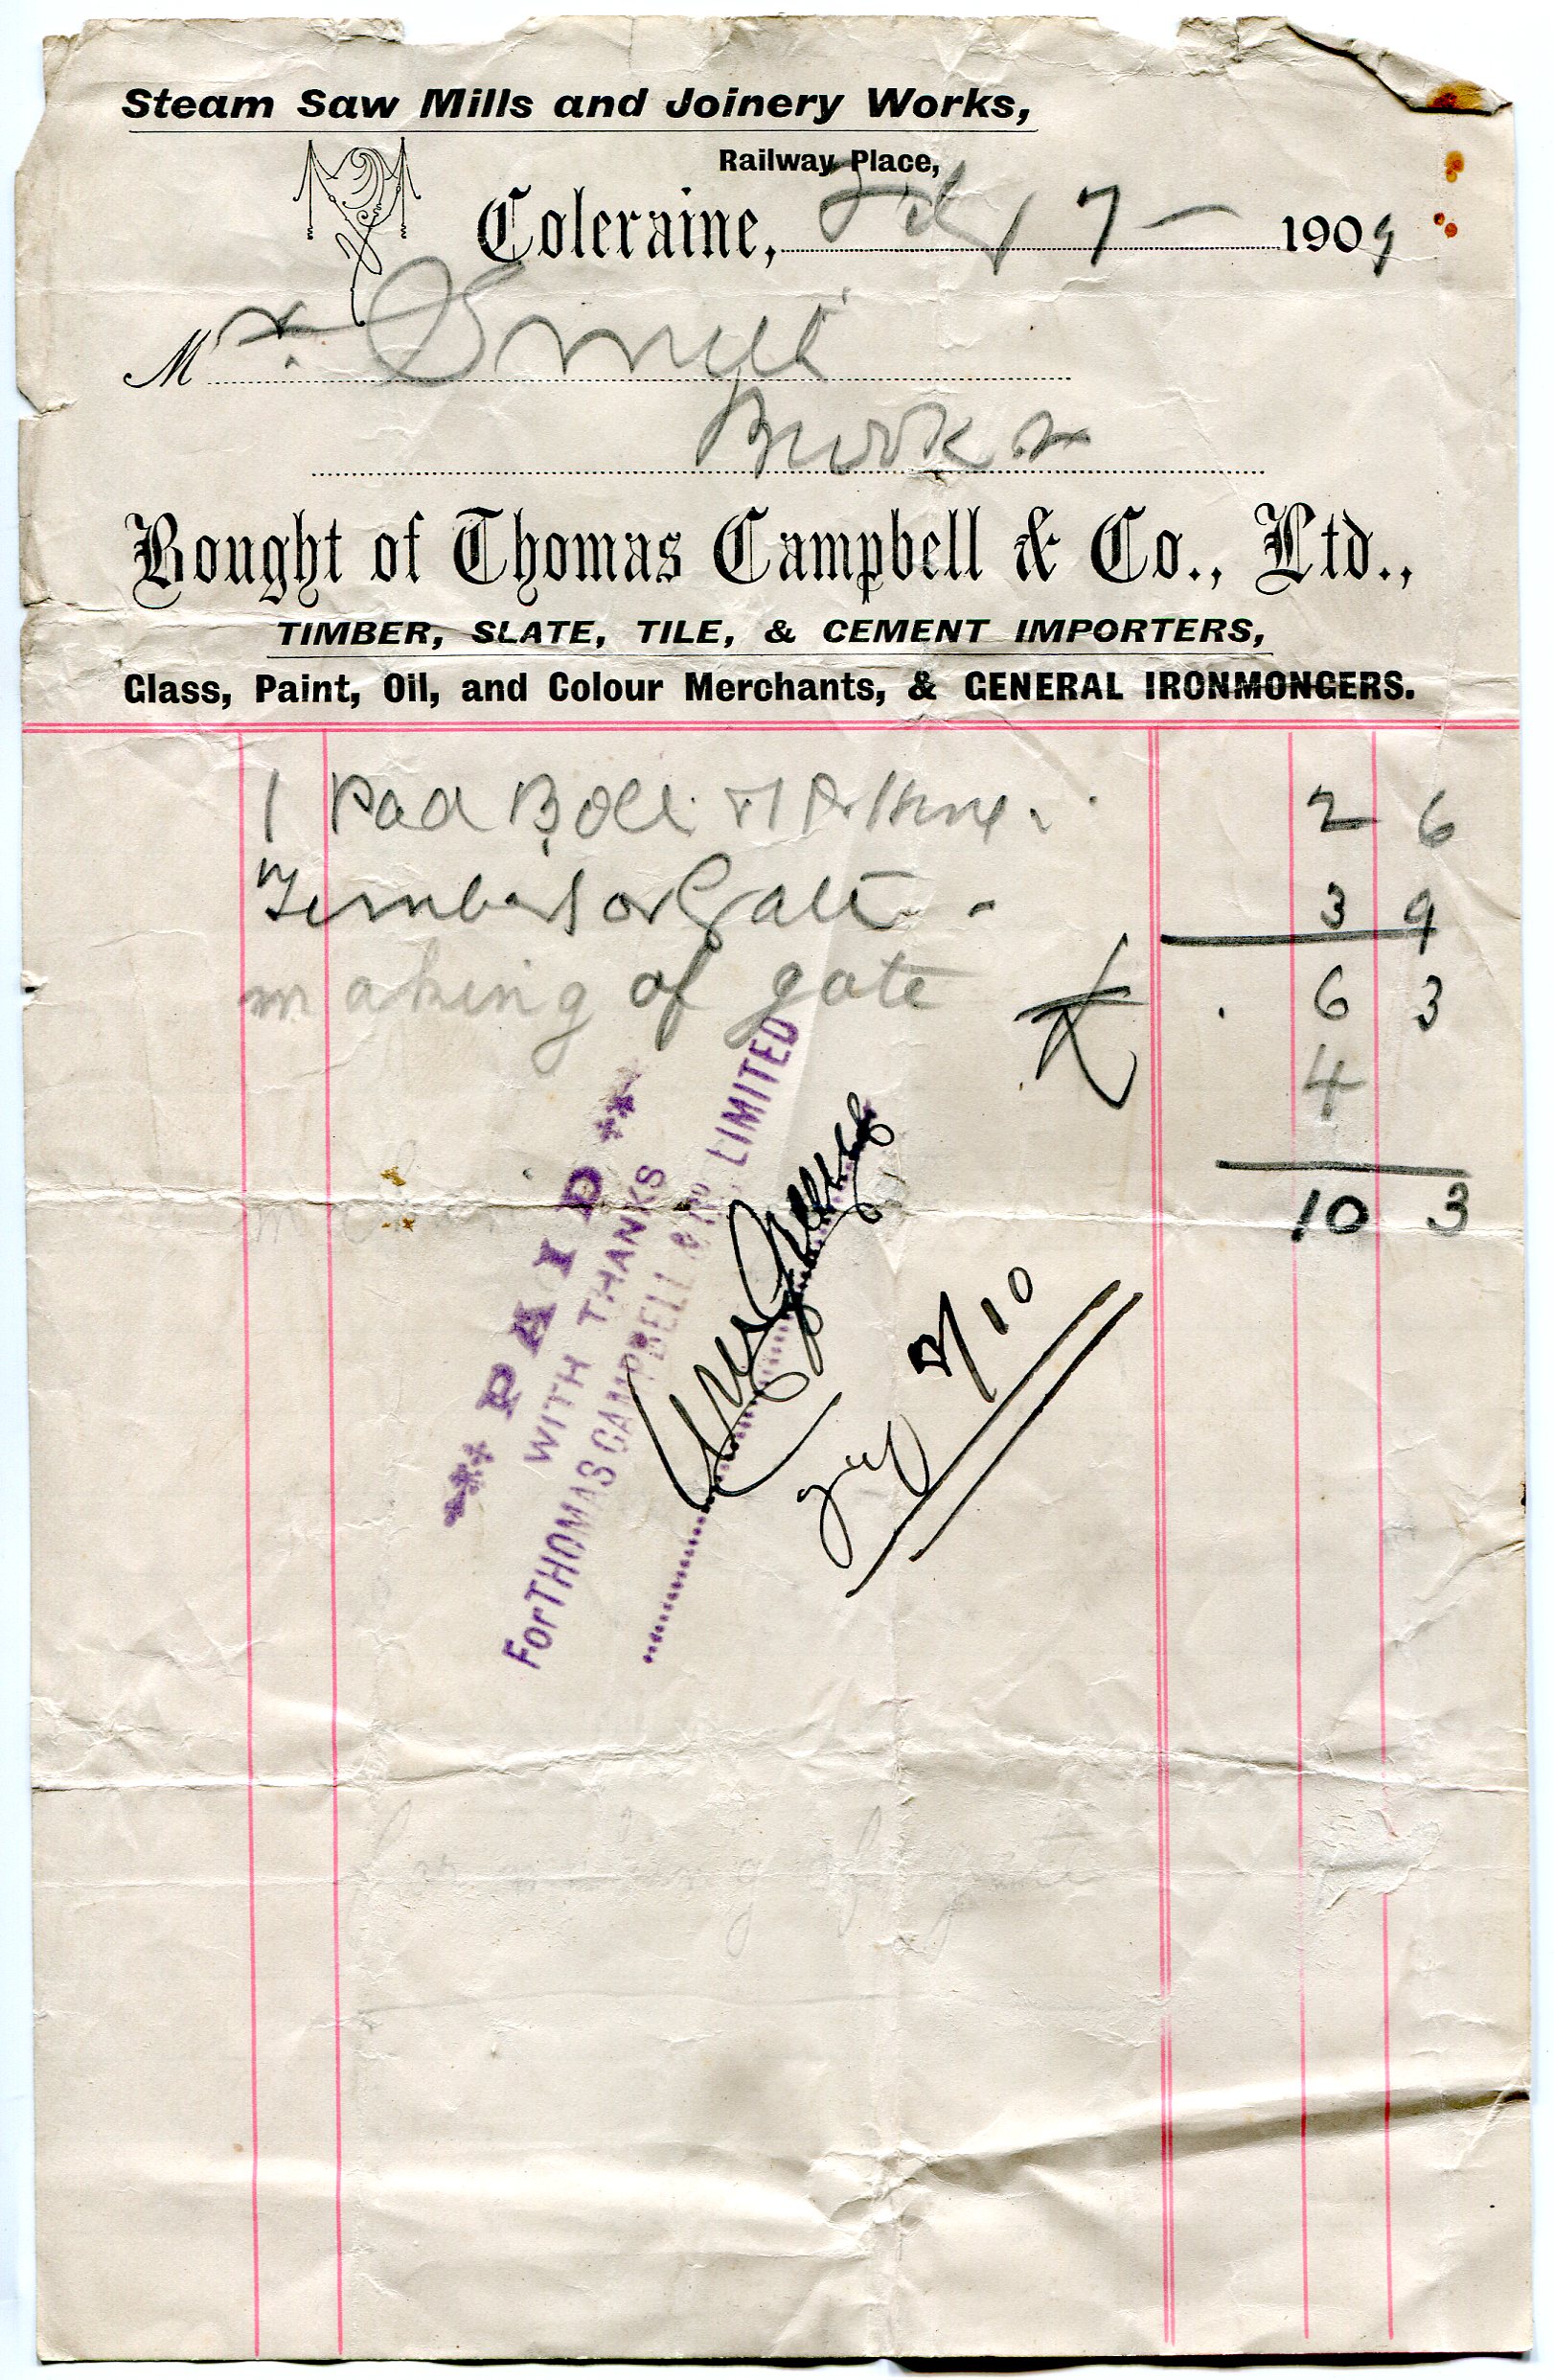 Steam Saw Mills and Joinery Works,
Railway Place,
Coleraine, 17 1909
Mr. Smith
Bought of Thomas Campbell & Co., Ltd.,
TIMBER, SLATE, TILE, & CEMENT IMPORTERS,
Glass, Paint, Oil, and Colour Merchants, & GENERAL IRONMONGERS.
1 Pad Bolt 2 6
Timber for Gate - 3 9
making of gate 6 3
4
10 3
PAID
WITH THANKS
For THOMAS CAMPBELL LIMITED